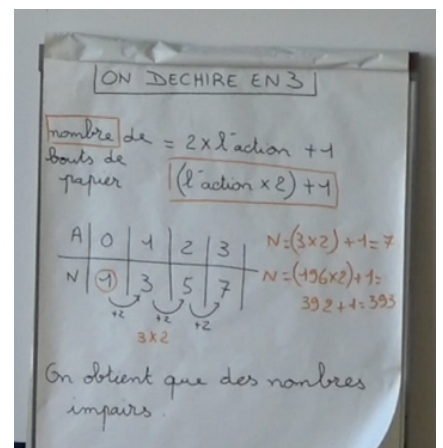 ON DECHIRE EN 3
nombre de bouts de papier = 2 x l'action + 1
(l'action x 2) + 1
A | 0 | 1 | 2 | 3
N | 1 | 3 | 5 | 7
+2 +2 +2
3 x 2
N = (3x2) + 1 = 7
N = (196x2) + 1 =
392 + 1 = 393
On obtient que des nombres
impairs.